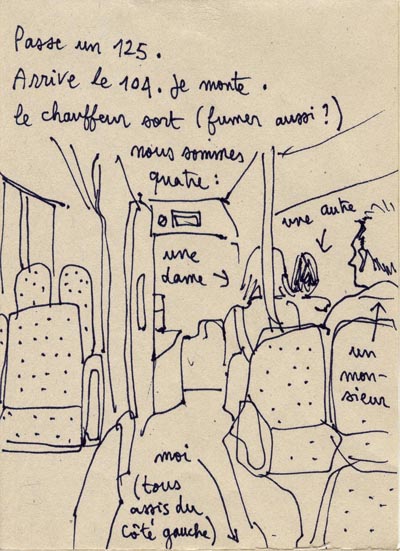 Passe un 125.
Arrive le 104. Je monte.
le chauffeur sort (fumer aussi?)
nous sommes
quatre :
une autre
une
dame →
un
mon-
sieur
moi
(tous
assis du
côté gauche)